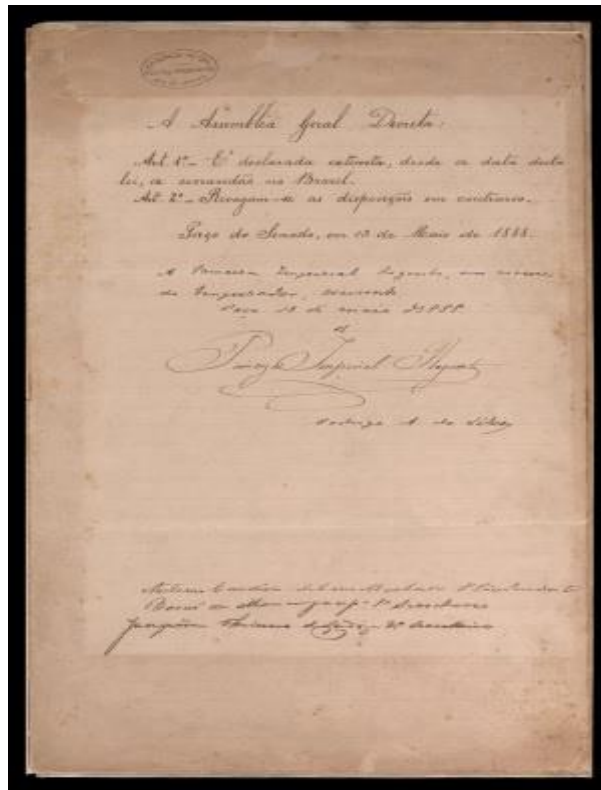 A Assembléa Geral Decreta:
Art. 1º - É declarada extincta, desde a data desta
lei, a escravidão no Brazil.
Art. 2º - Revogam-se as disposições em contrario.
Paço do Senado, em 13 de Maio de 1888.
A Princeza Imperial Regente, em nome
do Imperador, consente.
Paço 13 de maio de 1888
Princeza Imperial Regente
Rodrigo A. da Silva
1º Secretario
2º Secretario